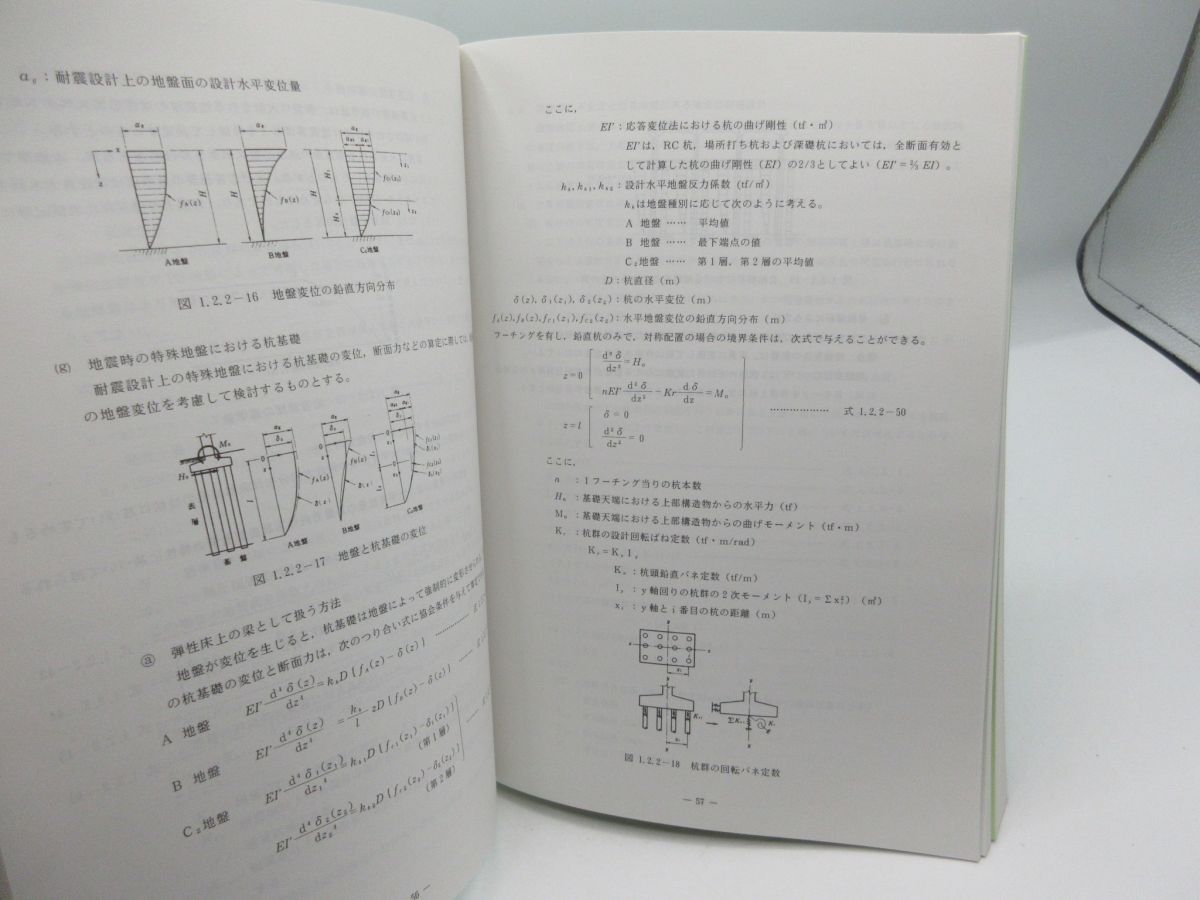 a_g：耐震設計上の地盤面の設計水平変位量
A地盤
B地盤
C₂地盤
図 1.2.2−16　地盤変位の鉛直方向分布
(g)　地震時の特殊地盤における杭基礎
耐震設計上の特殊地盤における杭基礎の変位，断面力などの算定に際しては，
の地盤変位を考慮して検討するものとする。
基盤
A地盤
B地盤
C₂地盤
図 1.2.2−17　地盤と杭基礎の変位
ⓐ　弾性床上の梁として扱う方法
地盤が変位を生じると，杭基礎は地盤によって強制的に変形させられ
の杭基礎の変位と断面力は，次のつり合い式に協会条件を与えて
A 地盤　EI' d⁴δ(z)/dz⁴ = k_h D{f_A(z)−δ(z)}
B 地盤　EI' d⁴δ(z)/dz⁴ = k_h/l zD{f_B(z)−δ(z)}
C₂地盤　EI' d⁴δ₁(z₁)/dz₁⁴ = k_h1 D{f_C1(z₁)−δ₁(z₁)}
(第1層)
EI' d⁴δ₂(z₂)/dz₂⁴ = k_h2 D{f_C2(z₂)−δ₂(z₂)}
(第2層)
56 —
ここに，
EI'：応答変位法における杭の曲げ剛性（tf・㎡）
EI'は，RC杭，場所打ち杭および深礎杭においては，全断面有効と
して計算した杭の曲げ剛性（EI）の2/3としてよい（EI'＝⅔ EI）。
k_h, k_h1, k_h2：設計水平地盤反力係数（tf/㎥）
k_hは地盤種別に応じて次のように考える。
A 地盤 …… 平均値
B 地盤 …… 最下端点の値
C₂地盤 …… 第1層，第2層の平均値
D：杭直径（m）
δ(z), δ₁(z₁), δ₂(z₂)：杭の水平変位（m）
f_A(z), f_B(z), f_C1(z₁), f_C2(z₂)：水平地盤変位の鉛直方向分布（m）
フーチングを有し，鉛直杭のみで，対称配置の場合の境界条件は，次式で与えることができる。
z=0　d³δ/dz³ = H₀
nEI' d²δ/dz² − Kr dδ/dz = M₀
………………　式 1.2.2−50
z=l　δ = 0
d²δ/dz² = 0
ここに，
n　：1フーチング当りの杭本数
H₀：基礎天端における上部構造物からの水平力（tf）
M₀：基礎天端における上部構造物からの曲げモーメント（tf・m）
K_r：杭群の設計回転ばね定数（tf・m/rad）
K_r＝K_v I_y
K_v：杭頭鉛直バネ定数（tf/m）
I_y：y軸回りの杭群の2次モーメント（I_y＝Σx_i²）（㎡）
x_i：y軸とi番目の杭の距離（m）
図 1.2.2−18　杭群の回転バネ定数
— 57 —